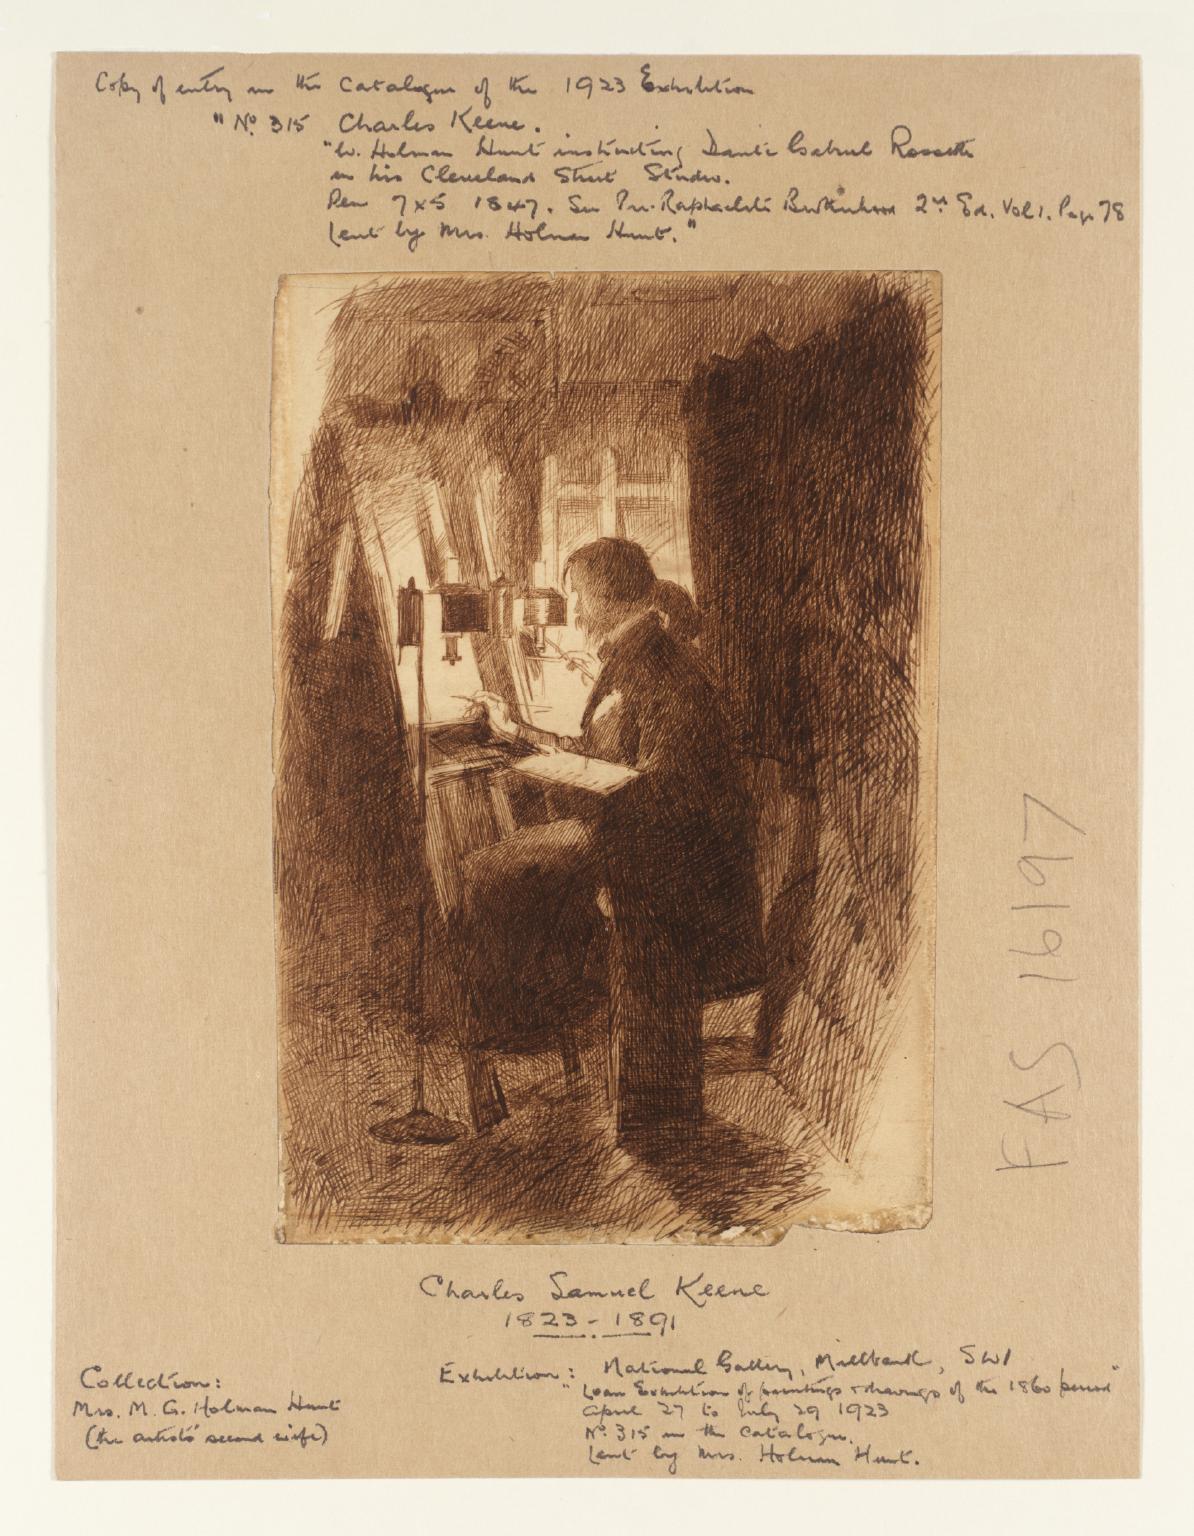 Copy of entry in the Catalogue of the 1923 Exhibition
"No. 315 Charles Keene.
"W. Holman Hunt instructing Dante Gabriel Rossetti
in his Cleveland Street Studio.
Pen 7x5 1847. See Pre-Raphaelite Brotherhood 2nd Ed. Vol 1. Page 78
Lent by Mrs. Holman Hunt."
FAS 16197
Charles Samuel Keene
1823 - 1891
Collection:
Mrs. M. G. Holman Hunt
(the artist's second wife)
Exhibition: National Gallery, Millbank, SW1
"Loan Exhibition of paintings & drawings of the 1860 period"
April 27 to July 29 1923
No. 315 in the Catalogue.
Lent by Mrs. Holman Hunt.